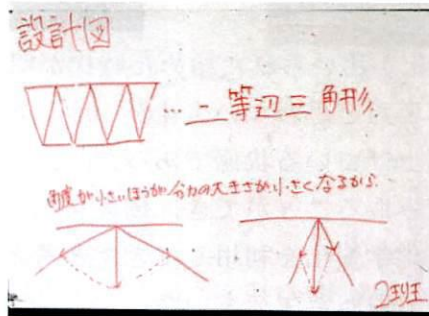 設計図
… 二等辺三角形.
角度が小さいほうが分力の大きさが小さくなるから.
2班